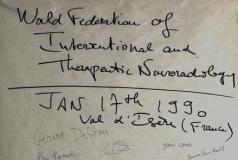 World Federation of
Interventional and
Therapeutic Neuroradiology
JAN 17th 1990
Val d'Isère (France)
Gerard Debrun